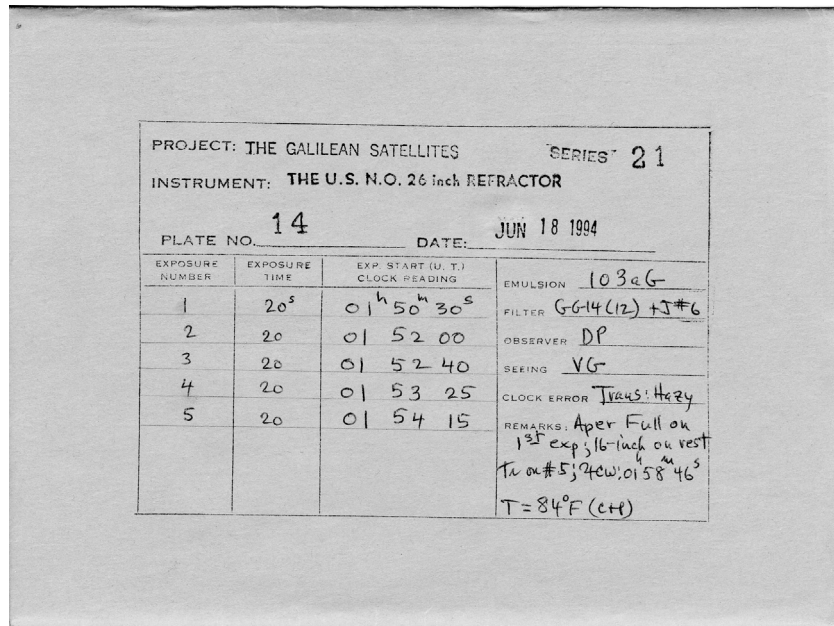 PROJECT: THE GALILEAN SATELLITES "SERIES" 21
INSTRUMENT: THE U.S. N.O. 26 inch REFRACTOR
PLATE NO. 14 DATE: JUN 18 1994
EXPOSURE NUMBER EXPOSURE TIME EXP. START (U.T.) CLOCK READING
1 20s 01h 50m 30s
2 20 01 52 00
3 20 01 52 40
4 20 01 53 25
5 20 01 54 15
EMULSION 103aG
FILTER GG14(12) + J#6
OBSERVER DP
SEEING VG
CLOCK ERROR Trans: Hazy
REMARKS: Aper Full on
1st exp; 16-inch on rest
Tr on #5; 01h 58m 46s
T = 84°F